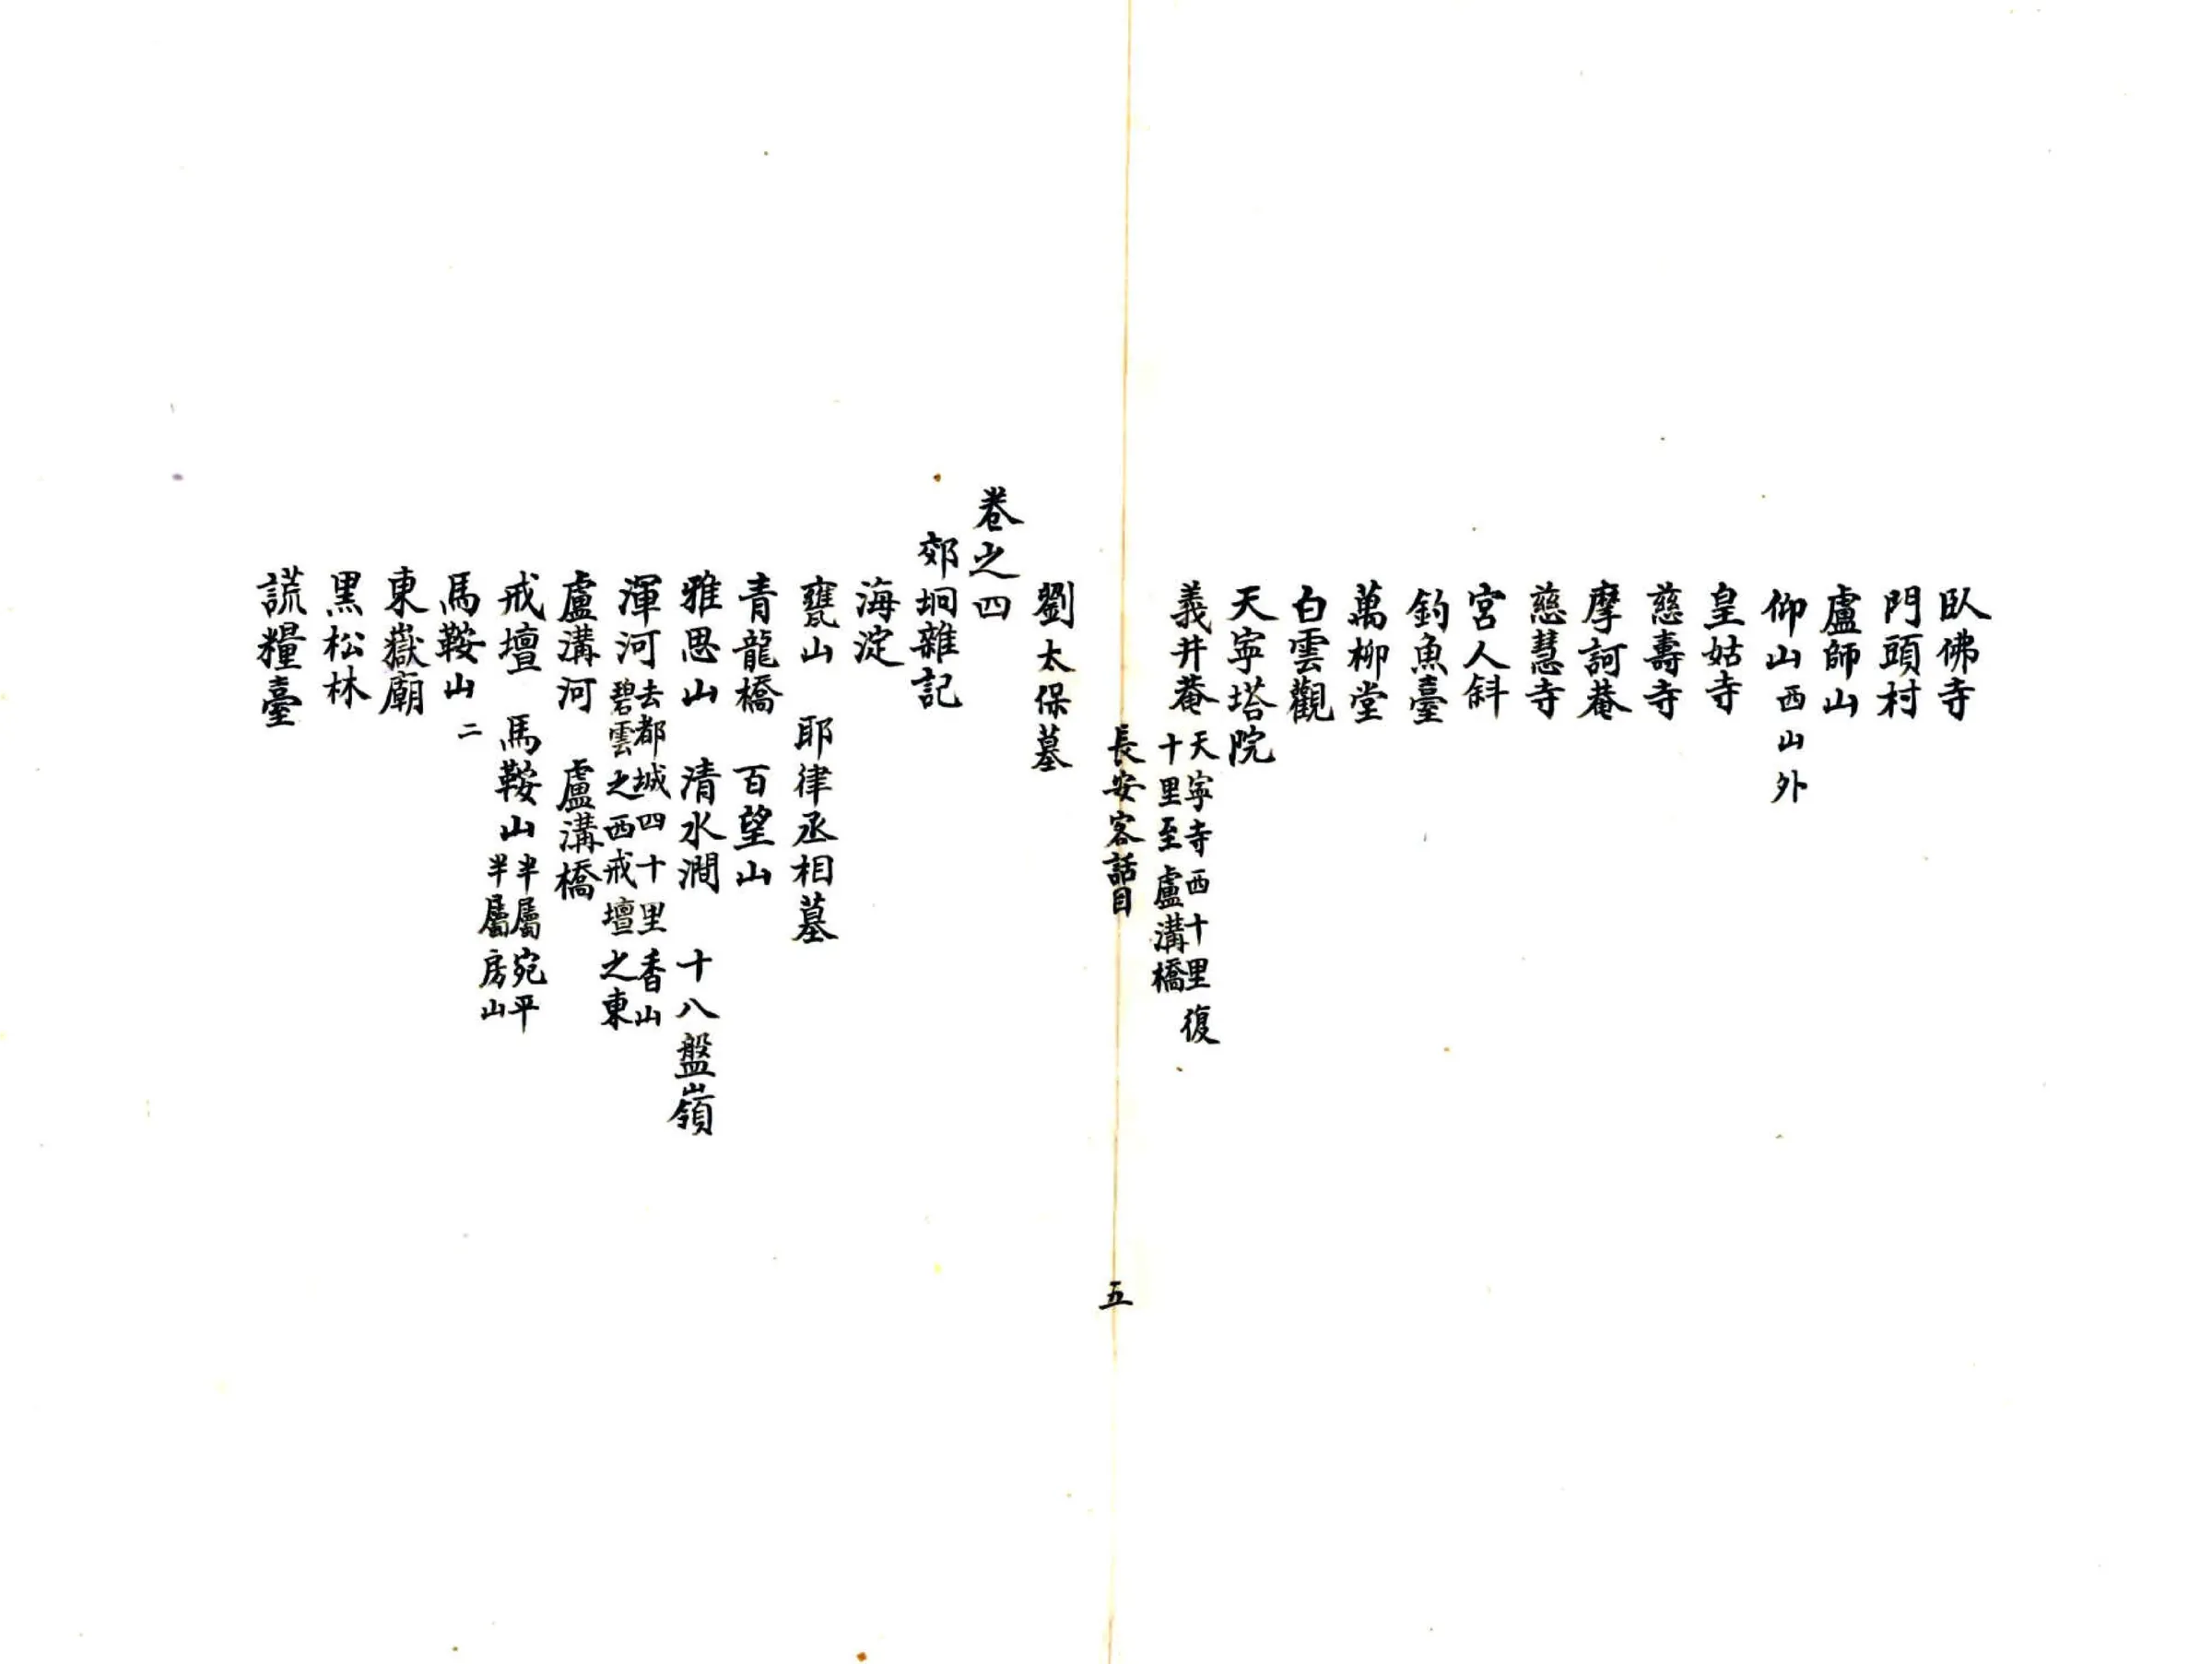 臥佛寺
門頭村
盧師山
仰山西山外
皇姑寺
慈壽寺
摩訶菴
慈慧寺
宮人斜
釣魚臺
萬柳堂
白雲觀
天寧塔院
義井菴天寧寺西十里復
十里至盧溝橋
長安客話目 五
劉太保墓
卷之四
郊坰雜記
海淀
甕山 耶律丞相墓
青龍橋 百望山
雅思山 清水澗 十八盤嶺
渾河去都城四十里香山
碧雲之西戒壇之東
盧溝河 盧溝橋
戒壇 馬鞍山半屬宛平
半屬房山
馬鞍山二
東嶽廟
黑松林
謊糧臺